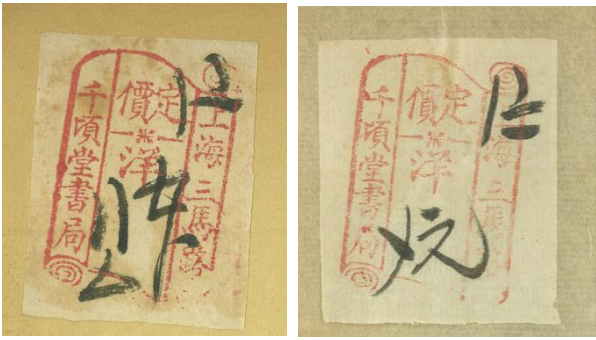 上海三馬路
定價
洋
千頃堂書局
上海三馬路
定價
洋
千頃堂書局